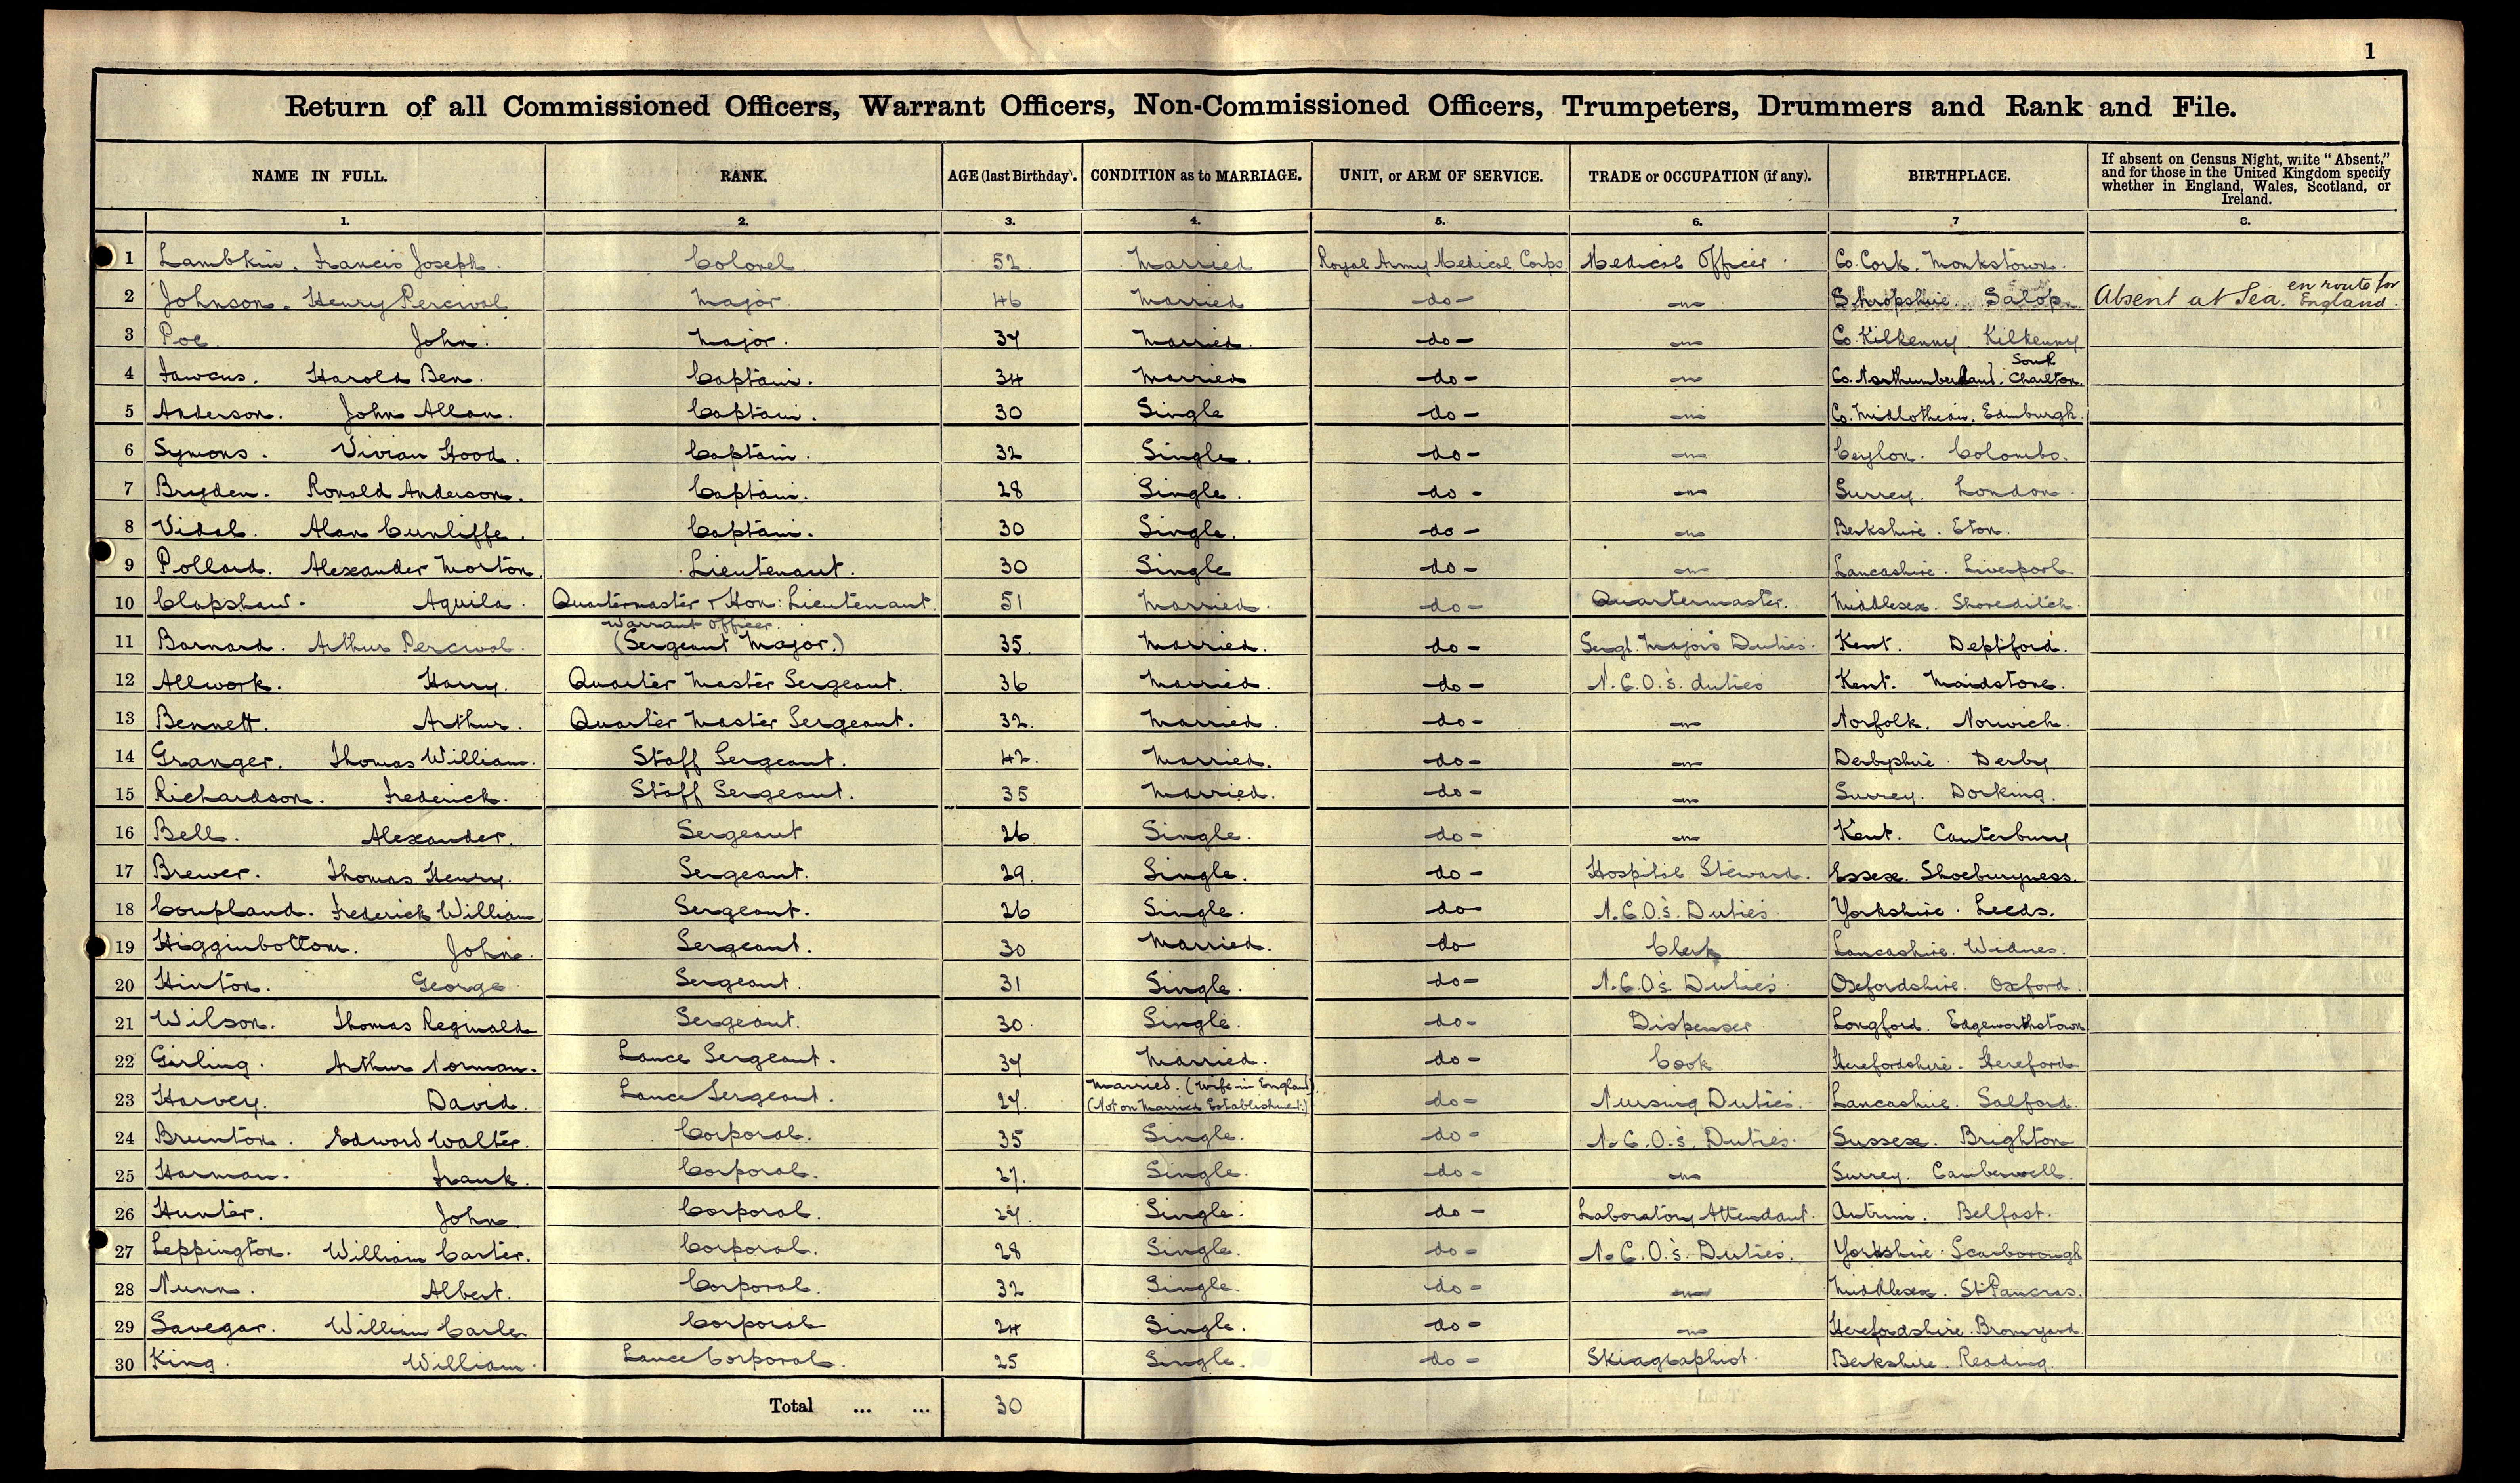 1
Return of all Commissioned Officers, Warrant Officers, Non-Commissioned Officers, Trumpeters, Drummers and Rank and File.
NAME IN FULL. RANK. AGE (last Birthday). CONDITION as to MARRIAGE. UNIT, or ARM OF SERVICE. TRADE or OCCUPATION (if any). BIRTHPLACE. If absent on Census Night, write "Absent," and for those in the United Kingdom specify whether in England, Wales, Scotland, or Ireland.
1. 2. 3. 4. 5. 6. 7 8.
1 Lambkin. Francis Joseph. Colonel 52. Married Royal Army Medical Corps Medical Officer. Co. Cork. Monkstown.
2 Johnson. Henry Percival Major. 46 Married do - " Shropshire. Salop. Absent at Sea. en route for England.
3 Poe. John. Major. 37 Married. do - " Co. Kilkenny. Kilkenny
4 Fawcus. Harold Ben. Captain. 34 Married do - " Co. Northumberland. South Charlton.
5 Anderson. John Allan. Captain. 30 Single do - " Co. Midlothian. Edinburgh.
6 Symons. Vivian Hood. Captain. 32 Single. do - " Ceylon. Colombo.
7 Bryden. Ronald Anderson. Captain. 28 Single. do - " Surrey. London.
8 Vidal. Alan Cunliffe. Captain. 30 Single. do - " Berkshire. Eton.
9 Pollard. Alexander Morton. Lieutenant. 30 Single do - " Lancashire. Liverpool
10 Clapshaw. Aquila. Quartermaster & Hon: Lieutenant. 51 Married. do - Quartermaster. Middlesex. Shoreditch.
11 Barnard. Arthur Percival. Warrant Officer. (Sergeant Major.) 35. Married. do - Sergt. Major's Duties. Kent. Deptford.
12 Allwork. Harry. Quarter Master Sergeant. 36 Married. do - N.C.O.'s. duties Kent. Maidstone.
13 Bennett. Arthur. Quarter Master Sergeant. 32. Married. do - " Norfolk. Norwich.
14 Granger. Thomas William. Staff Sergeant. 42. Married. do - " Derbyshire. Derby
15 Richardson. Frederick. Staff Sergeant. 35 Married. do - " Surrey. Dorking.
16 Bell. Alexander. Sergeant 26 Single. do - " Kent. Canterbury
17 Brewer. Thomas Henry. Sergeant. 29. Single. do - Hospital Steward. Essex. Shoeburyness.
18 Coupland. Frederick William Sergeant. 26 Single. do N.C.O.'s. Duties. Yorkshire. Leeds.
19 Higginbottom. John. Sergeant. 30 Married. do Clerk Lancashire. Widnes.
20 Hinton. George Sergeant. 31 Single. do - N.C.O's. Duties. Oxfordshire. Oxford.
21 Wilson. Thomas Reginald Sergeant. 30. Single. do - Dispenser Longford. Edgeworthstown
22 Girling. Arthur Norman. Lance Sergeant. 37 Married. do - Cook Herefordshire. Hereford
23 Harvey. David. Lance Sergeant. 27. Married. (Wife in England). (Not on Married Establishment.) do - Nursing Duties. Lancashire. Salford.
24 Brunton. Edward Walter. Corporal. 35 Single. do - N.C.O.'s. Duties. Sussex. Brighton
25 Harman. Frank. Corporal. 27. Single. do - " Surrey. Camberwell.
26 Hunter. John Corporal. 27. Single. do - Laboratory Attendant. Antrim. Belfast.
27 Leppington. William Carter. Corporal. 28 Single. do - N.C.O.'s. Duties. Yorkshire. Scarborough
28 Nunn. Albert. Corporal. 32 Single. do - " Middlesex. St Pancras.
29 Savegar. William Corporal 24 Single. do - " Herefordshire. Bromyard
30 King. William. Lance Corporal. 25 Single. do - Skiagraphist. Berkshire. Reading
Total ... ... 30